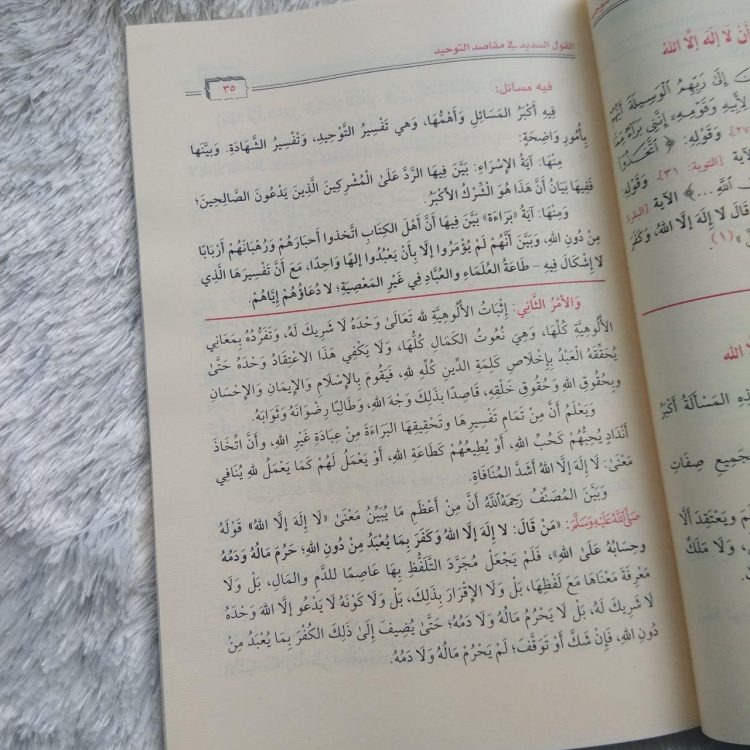 القول السديد في مقاصد التوحيد
٣٥
فيه مسائل:
فِيهِ أَكْبَرُ المَسَائِلِ وَأَهَمُّهَا، وَهي تَفْسِيرُ التَّوْحِيدِ، وَتَفْسِيرُ الشَّهَادَةِ. وَبيَّنَها
بِأُمُورٍ وَاضِحَةٍ:
مِنْهَا: آيَةُ الإِسْرَاءِ: بَيَّنَ فِيهَا الرَّدَّ عَلَىٰ الْمُشْرِكِينَ الَّذِينَ يَدْعُونَ الصَّالِحِينَ؛
فَفِيهَا بَيَانُ أَنَّ هَذَا هُوَ الشِّرْكُ الأَكْبَرُ.
وَمِنْهَا: آيَةُ «بَرَاءَة» بَيَّنَ فِيهَا أَنَّ أَهْلَ الكِتَابِ اتَّخذوا أَحْبَارَهُمْ وَرُهْبَانَهُمْ أَرْبَابًا
مِنْ دُونِ اللهِ، وَبَيَّنَ أَنَّهُمْ لَمْ يُؤْمَرُوا إلَّا بِأَنْ يَعْبُدُوا إلهًا وَاحِدًا، مَعَ أَنَّ تَفْسِيرَهَا الَّذِي
لا إِشْكَالَ فِيهِ - طَاعَةُ العُلَمَاءِ والعُبَّادِ فِي غَيْرِ المَعْصِيَةِ؛ لا دُعَاؤُهُمْ إِيَّاهُمْ.
وَالأَمْرُ الثَّانِي: إِثْبَاتُ الأُلُوهِيَّةِ لله تَعَالَىٰ وَحْدَهُ لَا شَرِيكَ لَهُ، وَتَفَرُّدُهُ بِمَعَانِي
الأُلُوهِيَّةِ كُلِّهَا، وَهِيَ نُعُوتُ الكَمَالِ كُلُّهَا، وَلَا يَكْفِي هَذَا الاعْتِقَادُ وَحْدَهُ حَتَّىٰ
يُحَقِّقَهُ العَبْدُ بِإِخْلَاصِ كَلِمَةِ الدِّينِ كُلِّهِ للهِ، فَيَقُومَ بِالإِسْلَامِ وَالإِيمَانِ وَالإِحْسَانِ
وبِحُقُوقِ اللهِ وَحُقُوقِ خَلْقِهِ، قَاصِدًا بِذَلِكَ وَجْهَ اللهِ، وَطَالِبًا رِضْوَانَهُ وَثَوَابَهُ.
وَيَعْلَمُ أَنَّ مِنْ تَمَامِ تَفْسِيرِهَا وَتَحْقِيقِهَا البَرَاءَةَ مِنْ عِبَادَةِ غَيْرِ اللهِ، وأَنَّ اتِّخَاذَ
أَنْدَادٍ يُحِبُّهُمْ كَحُبِّ اللهِ، أَوْ يُطِيعُهُمْ كَطَاعَةِ اللهِ، أَوْ يَعْمَلُ لَهُمْ كَمَا يَعْمَلُ للهِ يُنَافِي
مَعْنَىٰ: لَا إِلَهَ إِلَّا اللهُ أَشَدَّ المُنَافَاةِ.
وَبَيَّنَ المُصَنِّفُ رَحِمَهُ اللَّهُ أَنَّ مِنْ أَعْظَمِ مَا يُبَيِّنُ مَعْنَىٰ «لَا إِلَهَ إِلَّا اللهُ» قَوْلَهُ
صَلَّى اللَّهُ عَلَيْهِ وَسَلَّمَ: «مَنْ قَالَ: لا إِلَهَ إِلَّا اللهُ وَكَفَرَ بِمَا يُعْبَدُ مِنْ دُونِ اللهِ؛ حَرُمَ مَالُهُ وَدَمُهُ
وحِسَابُهُ عَلَىٰ اللهِ»، فَلَمْ يَجْعَلْ مُجَرَّدَ التَّلَفُّظِ بِهَا عَاصِمًا لِلدَّمِ وَالمَالِ، بَلْ وَلَا
مَعْرِفَةَ مَعْنَاهَا مَعَ لَفْظِهَا، بَلْ وَلَا الإِقْرَارَ بِذَلِكَ، بَلْ وَلَا كَوْنَهُ لَا يَدْعُو إِلَّا اللهَ وَحْدَهُ
لَا شَرِيكَ لَهُ، بَلْ لَا يَحْرُمُ مَالُهُ وَلَا دَمُهُ؛ حَتَّىٰ يُضِيفَ إِلَىٰ ذَلِكَ الكُفْرَ بِمَا يُعْبَدُ مِنْ
دُونِ اللهِ، فَإِنْ شَكَّ أَوْ تَوَقَّفَ؛ لَمْ يَحْرُمْ مَالُهُ وَلَا دَمُهُ.
أَنْ لَا إِلَهَ إِلَّا اللهُ
إِلَىٰ رَبِّهِمُ الْوَسِيلَةَ أَيُّهُمْ
لِأَبِيهِ وَقَوْمِهِ إِنَّنِي بَرَاءٌ مِّمَّا
٢٧]. وَقَوْلِهِ: ﴿ اتَّخَذُوا
الآية [التوبة: ٣١] وَقَوْلِهِ
اللَّهِ ...﴾ الآية [البقرة:
قَالَ لَا إِلَهَ إِلَّا اللهُ، وَكَفَرَ
(١).
لا الله
ذِهِ المَسْأَلَةُ أَكْبَرُ
بِجَمِيعِ صِفَاتِ
وَيَعْتَقِدَ أَلَّا
وَلَا مَلَكٌ